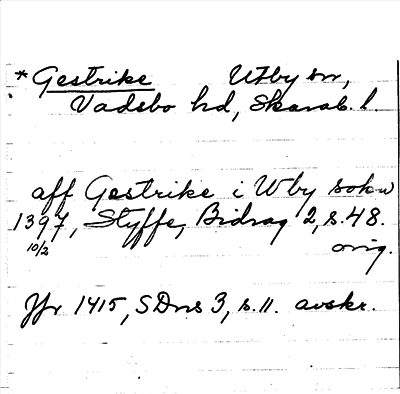 * Gestrike Utby sn,
Vadsbo hd, Skarab. l.
aff Gestrike i Wby sokn
1397, Styffe, Bidrag 2, s. 48.
10/2 orig.
Jfr 1415, SDns 3, s. 11. avskr.